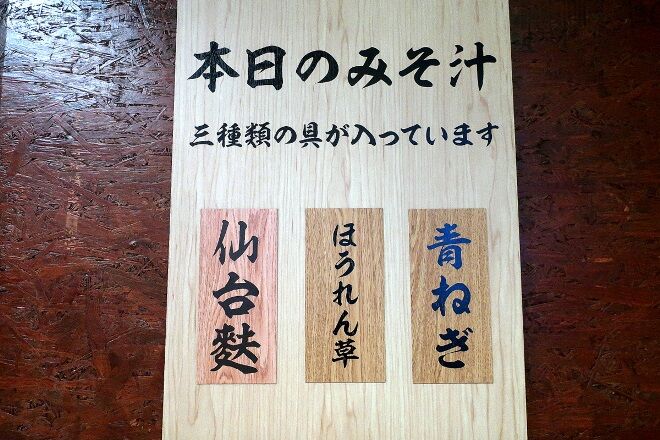 本日のみそ汁
三種類の具が入っています
青ねぎ
ほうれん草
仙台麩